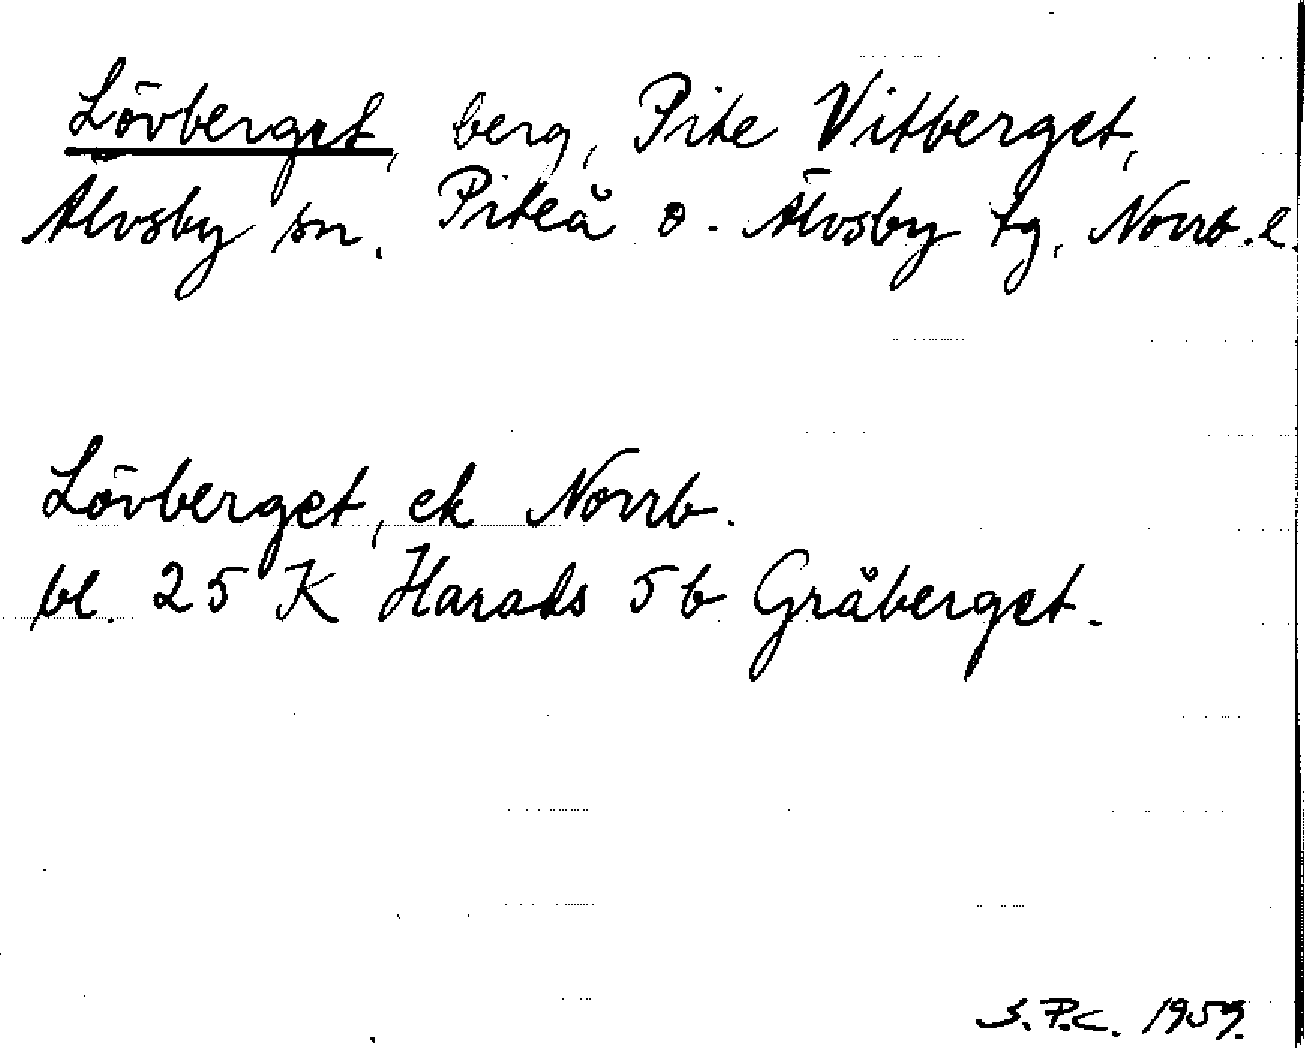 Lövberget, berg, Pite Vitberget,
Älvsby sn. Piteå o. Älvsby tg, Norrb. l.
Lövberget, ek Norrb.
bl. 25 K Harads 5b Gråberget.
S.P.C. 1959.